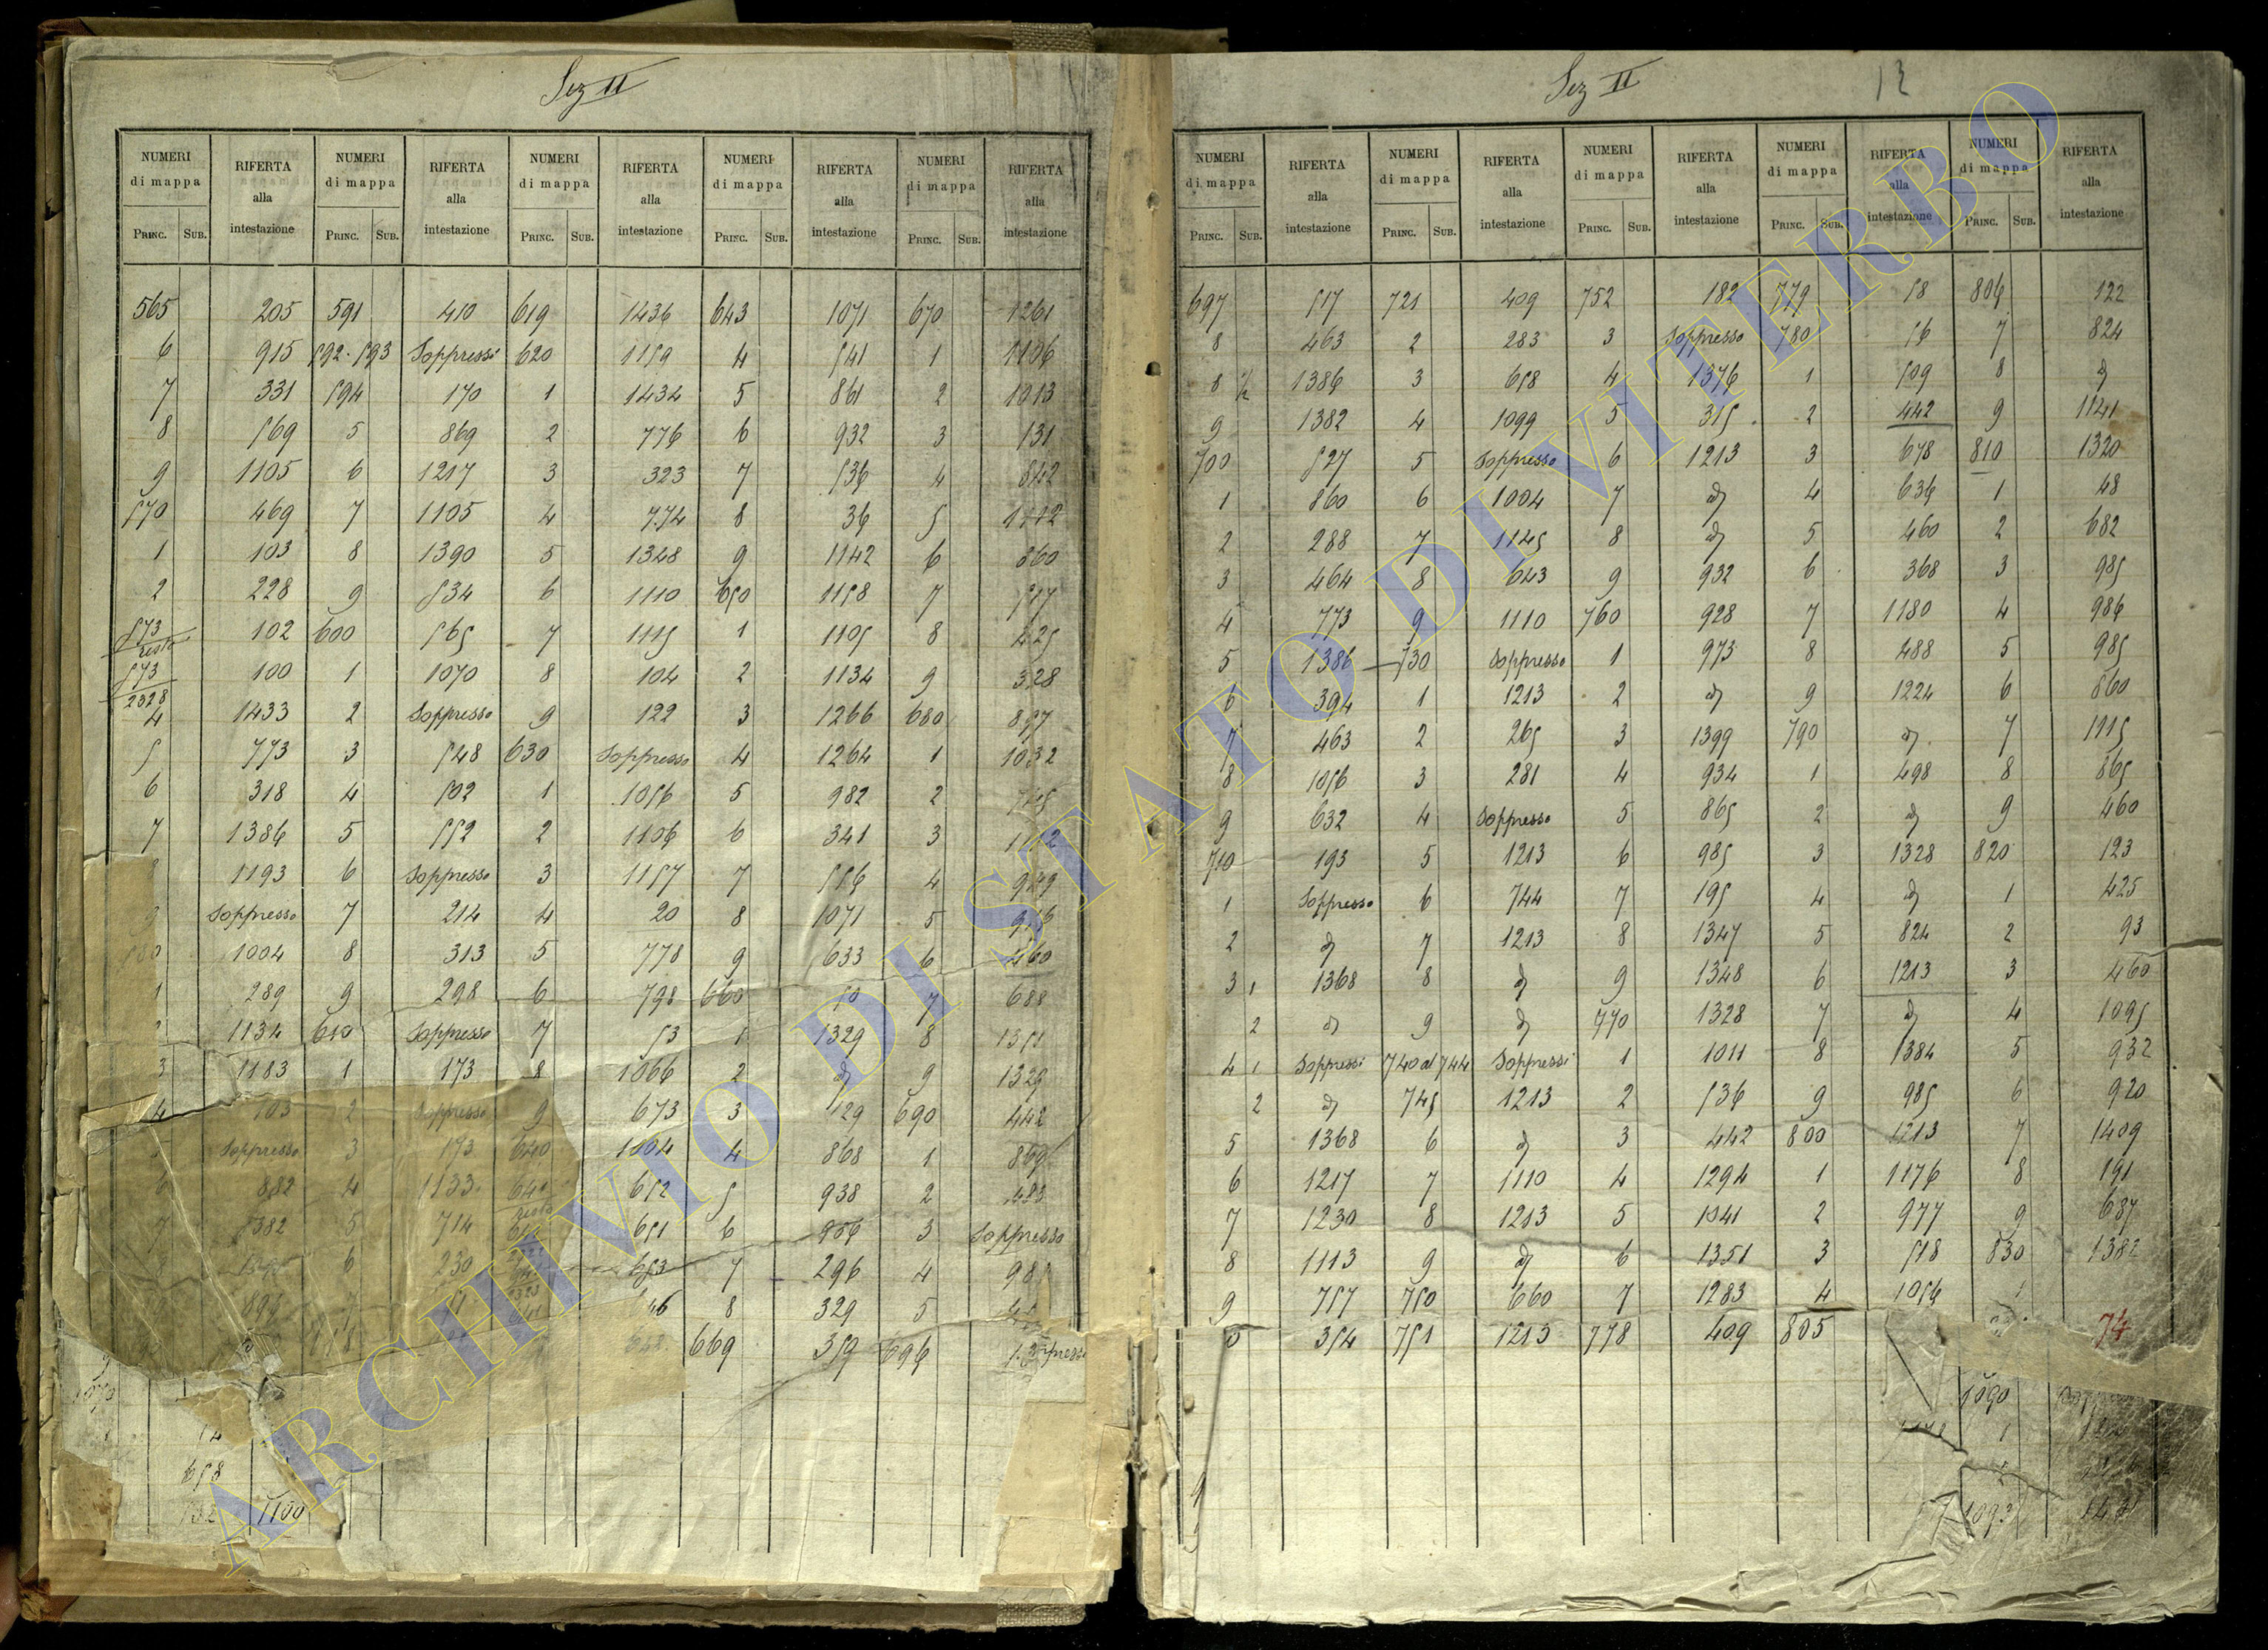 Sez II
NUMERI di mappa RIFERTA alla intestazione NUMERI di mappa RIFERTA alla intestazione NUMERI di mappa RIFERTA alla intestazione NUMERI di mappa RIFERTA alla intestazione NUMERI di mappa RIFERTA alla intestazione
PRINC. SUB. PRINC. SUB. PRINC. SUB. PRINC. SUB. PRINC. SUB.
565 205 591 410 619 1436 643 1071 670 1261
6 915 592.593 Soppressi 620 1159 4 541 1 1106
7 331 594 170 1 1434 5 861 2 1013
8 569 5 869 2 776 6 932 3 131
9 1105 6 1217 3 323 7 536 4 842
570 469 7 1105 4 774 8 36 5
1 103 8 1390 5 1348 9 1142 6 860
2 228 9 534 6 1110 650 1158 7 517
573 resto 102 600 565 7 1115 1 1105 8 425
573 2328 100 1 1070 8 104 2 1134 9 328
4 1433 2 Soppresso 9 122 3 1266 680 857
5 773 3 548 630 Soppresso 4 1264 1 1032
6 318 4 502 1 1056 5 982 2
7 1386 5 552 2 1106 6 341 3
1193 6 Soppresso 3 1157 7 556 4 949
Soppresso 7 214 4 20 8 1071 5
1004 8 313 5 778 9 633 6 460
289 9 298 6 798 660 50 7 688
1134 610 Soppresso 7 53 1 1329 8 1351
3 1183 1 173 8 1066 2 d 9 1329
4 103 2 Soppresso 9 673 3 129 690 442
5 Soppresso 3 193 640 1004 4 868 1 869
6 882 4 1133 641 resto 652 5 938 2
7 1382 5 714 651 6 956 3 Soppresso
8 6 230 653 7 296 4
8 329 5
669 359 696
658
1100
Sez II 13
NUMERI di mappa RIFERTA alla intestazione NUMERI di mappa RIFERTA alla intestazione NUMERI di mappa RIFERTA alla intestazione NUMERI di mappa RIFERTA alla intestazione NUMERI di mappa RIFERTA alla intestazione
PRINC. SUB. PRINC. SUB. PRINC. SUB. PRINC. SUB. PRINC. SUB.
697 517 721 409 752 182 779 58 806 122
8 463 2 283 3 Soppresso 780 56 7 824
8 1/2 1386 3 658 4 1376 1 509 8 d
9 1382 4 1099 5 315 2 442 9 1141
700 527 5 Soppresso 6 1213 3 678 810 1320
1 860 6 1004 7 d 4 636 1 48
2 288 7 1145 8 d 5 460 2 682
3 464 8 643 9 932 6 368 3 985
4 773 9 1110 760 928 7 1180 4 986
5 1386 730 Soppresso 1 973 8 488 5 985
6 394 1 1213 2 d 9 1224 6 860
7 463 2 265 3 1399 790 d 7 1115
8 1056 3 281 4 934 1 498 8 865
9 632 4 Soppresso 5 865 2 d 9 460
710 193 5 1213 6 985 3 1328 820 123
1 Soppresso 6 744 7 195 4 d 1 425
2 d 7 1213 8 1347 5 824 2 93
3 1 1368 8 d 9 1348 6 1213 3 460
2 d 9 d 770 1328 7 d 4 1095
4 1 Soppressi 740 al 744 Soppressi 1 1011 8 1384 5 932
2 d 745 1213 2 536 9 985 6 920
5 1368 6 d 3 442 800 1213 7 1409
6 1217 7 1110 4 1294 1 1176 8 191
7 1230 8 1213 5 1041 2 977 9 687
8 1113 9 d 6 1351 3 518 830 1382
9 757 750 660 7 1283 4 1056 1
0 354 751 1213 778 409 805 74
1090
1
1093
ARCHIVIO DI STATO DI VITERBO